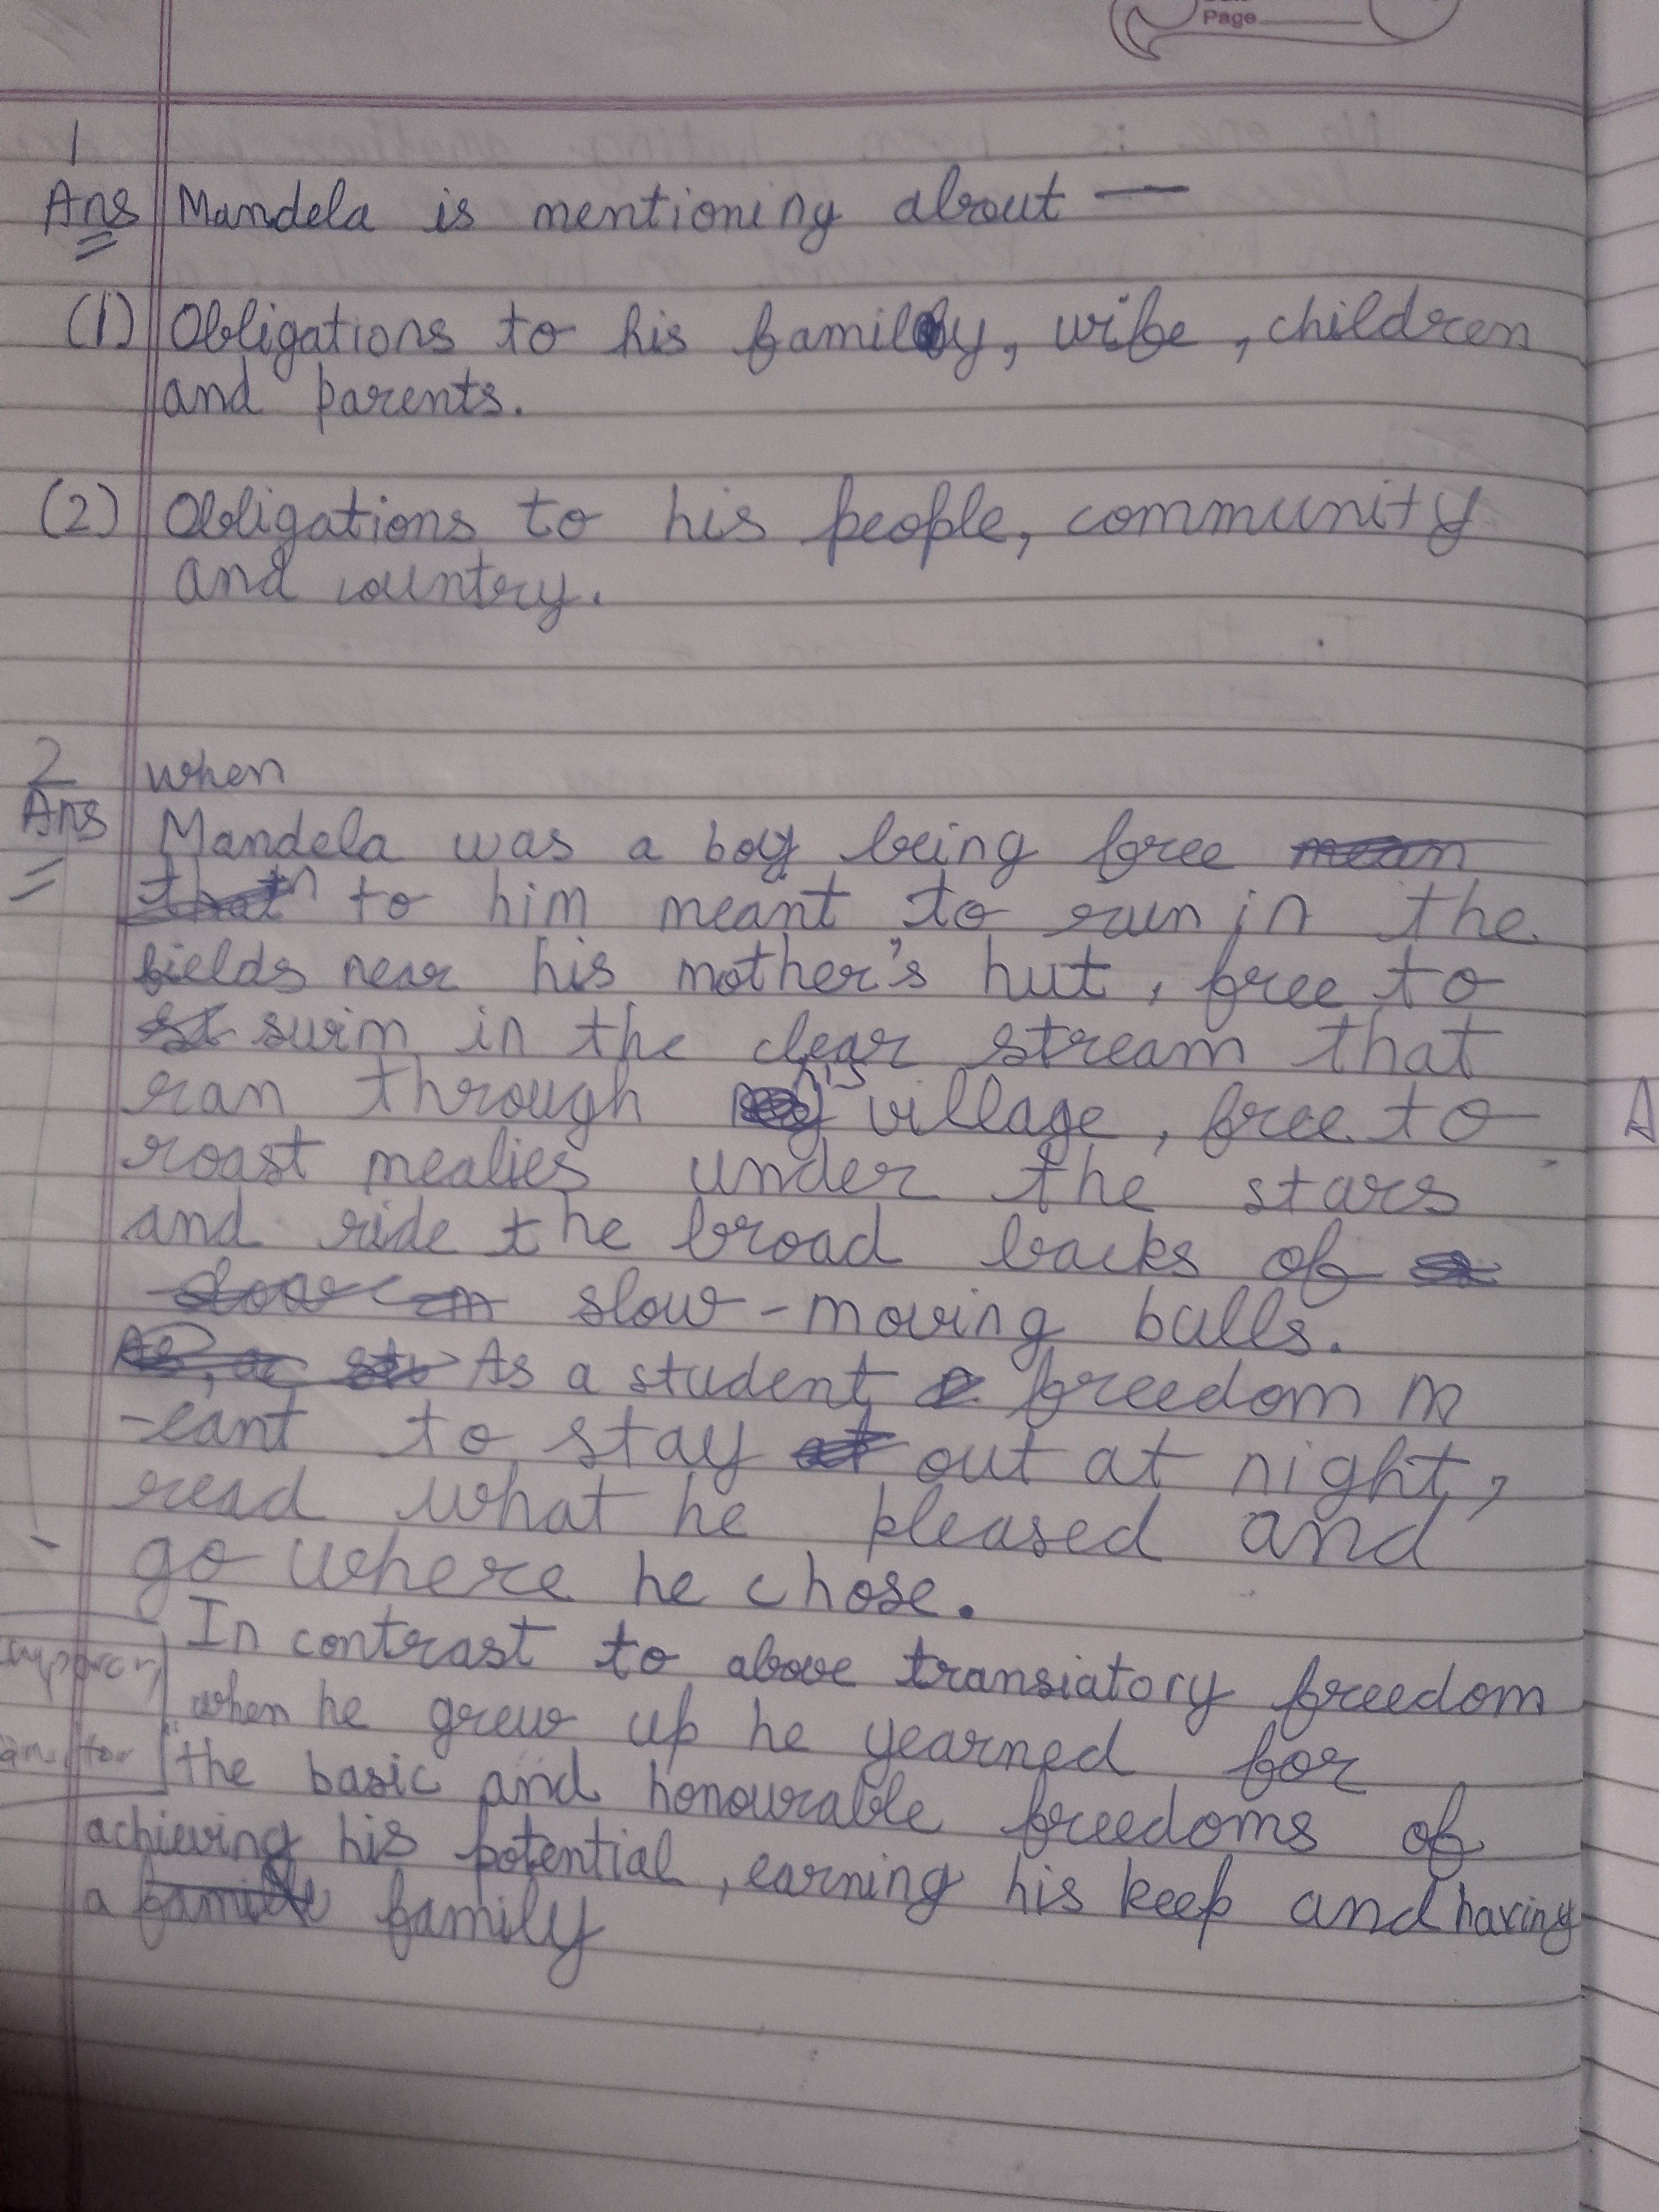 Page
1
Ans Mandela is mentioning about —
(1) Obligations to his family, wife, children
and parents.
(2) Obligations to his people, community
and country.
2 when
Ans Mandela was a boy being free mean
that to him meant to run in the
fields near his mother's hut, free to
st swim in the clear stream that
ran through his village, free to
roast mealies under the stars
and ride the broad backs of
slow-moving bulls.
As a student freedom m
-eant to stay at out at night,
read what he pleased and
go where he chose.
In contrast to above transiatory freedom
when he grew up he yearned for
the basic and honourable freedoms of
achieving his potential, earning his keep and having
a family
A